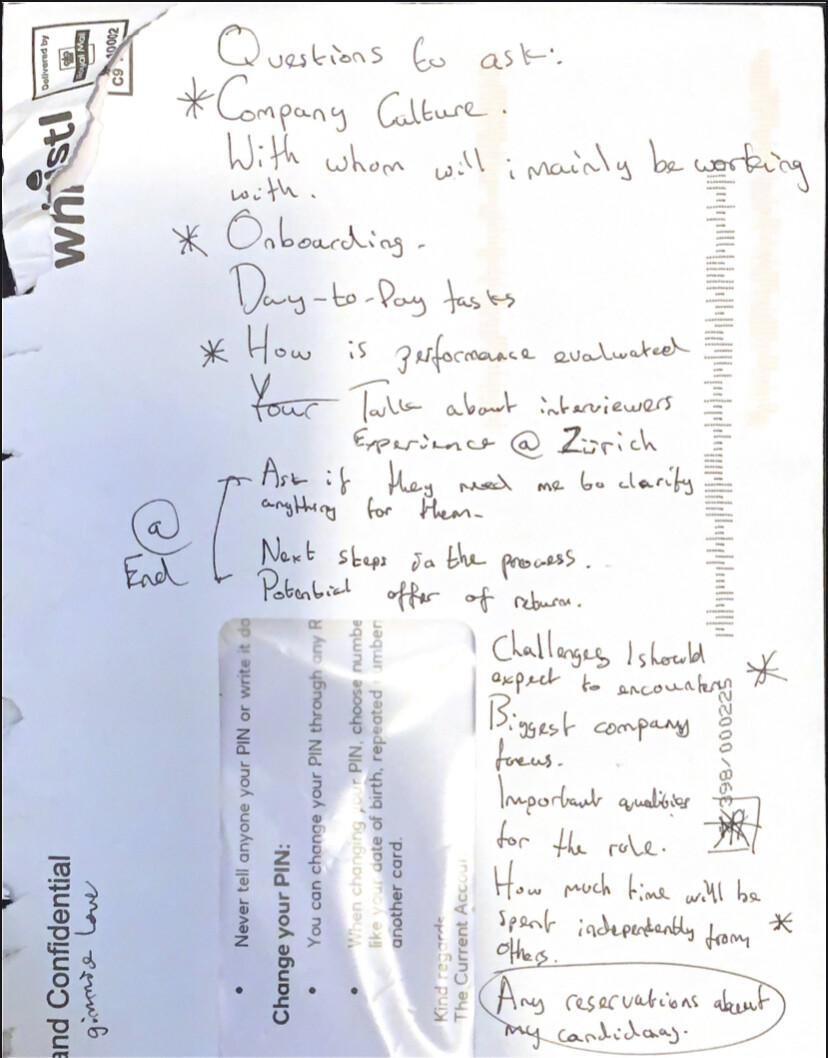 Delivered by
Royal Mail
C9 10002
whistl
Questions to ask:
* Company Culture.
With whom will i mainly be working
with.
* Onboarding.
Day-to-Day tasks
* How is performance evaluated
Your Talk about interviewers
Experience @ Zürich
@ End
Ask if they need me to clarify
anything for them.
Next steps in the process.
Potential offer of return.
Challenges I should
expect to encounters *
Biggest company
focus.
Important qualities
for the role.
How much time will be
spent independently from *
others.
Any reservations about
my candidacy.
• Never tell anyone your PIN or write it do
Change your PIN:
• You can change your PIN through any R
• When changing your PIN, choose numbe
like your date of birth, repeated number
another card.
Kind regards
The Current Accou
398/000225
and Confidential
gimmie love